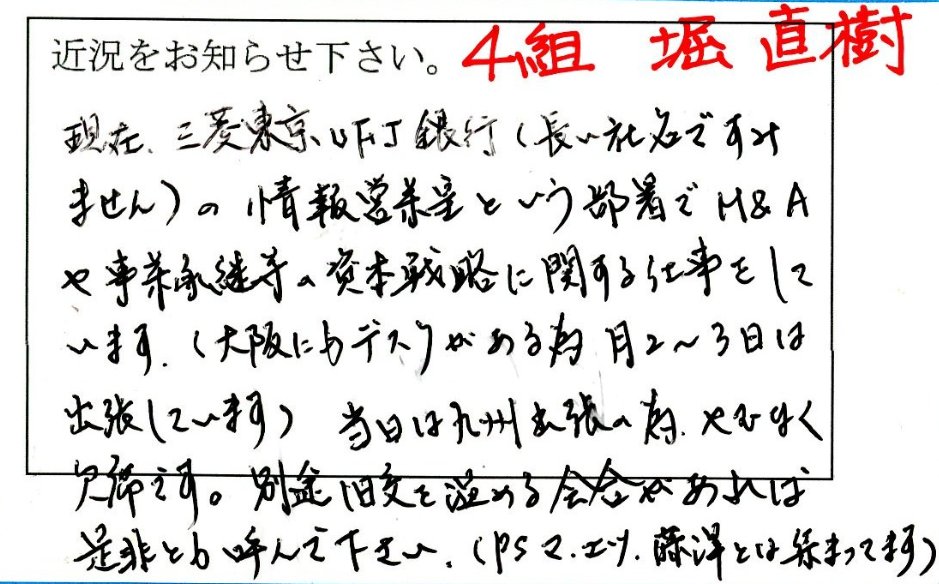 近況をお知らせ下さい。 4組 堀 直樹
現在、三菱東京UFJ銀行(長い社名ですみ
ません)の情報営業室という部署でM&A
や事業承継等の資本戦略に関する仕事をして
います。(大阪にもデスクがある為月2〜3日は
出張しています) 当日は九州出張の為、やむなく
欠席です。別途旧交を温める会合があれば
是非とも呼んで下さい。(PS マ.エツ.藤澤とは集まってます)